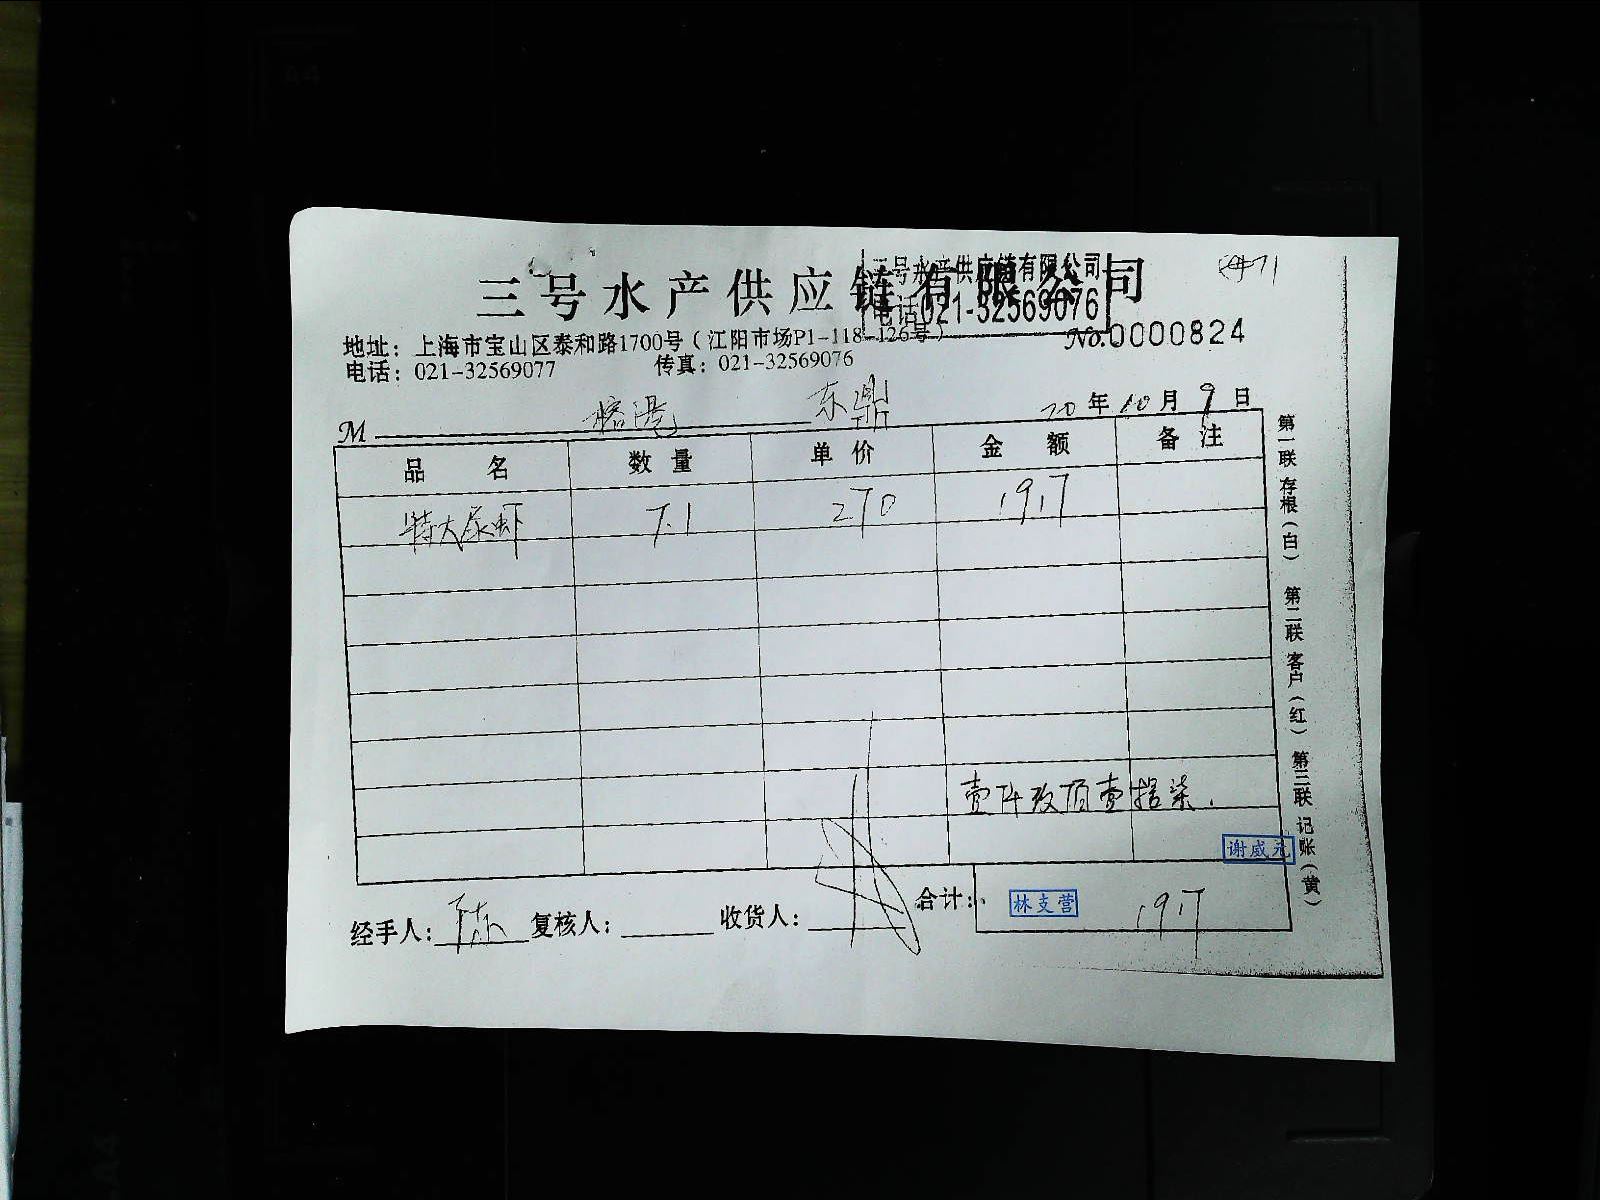 三号水产供应链有限公司
三号水产供应链有限公司
电话021-32569076
No.0000824
地址：上海市宝山区泰和路1700号（江阳市场P1-118-126号）
电话：021-32569077 传真：021-32569076
M 榕港 东鼎 20年10月9日
品名 数量 单价 金额 备注
特大尿虾 7.1 270 1917
壹仟玖佰壹拾柒.
谢威元
经手人： 复核人： 收货人： 合计： 林支营 1917
第一联 存根（白） 第二联 客户（红） 第三联 记账（黄）